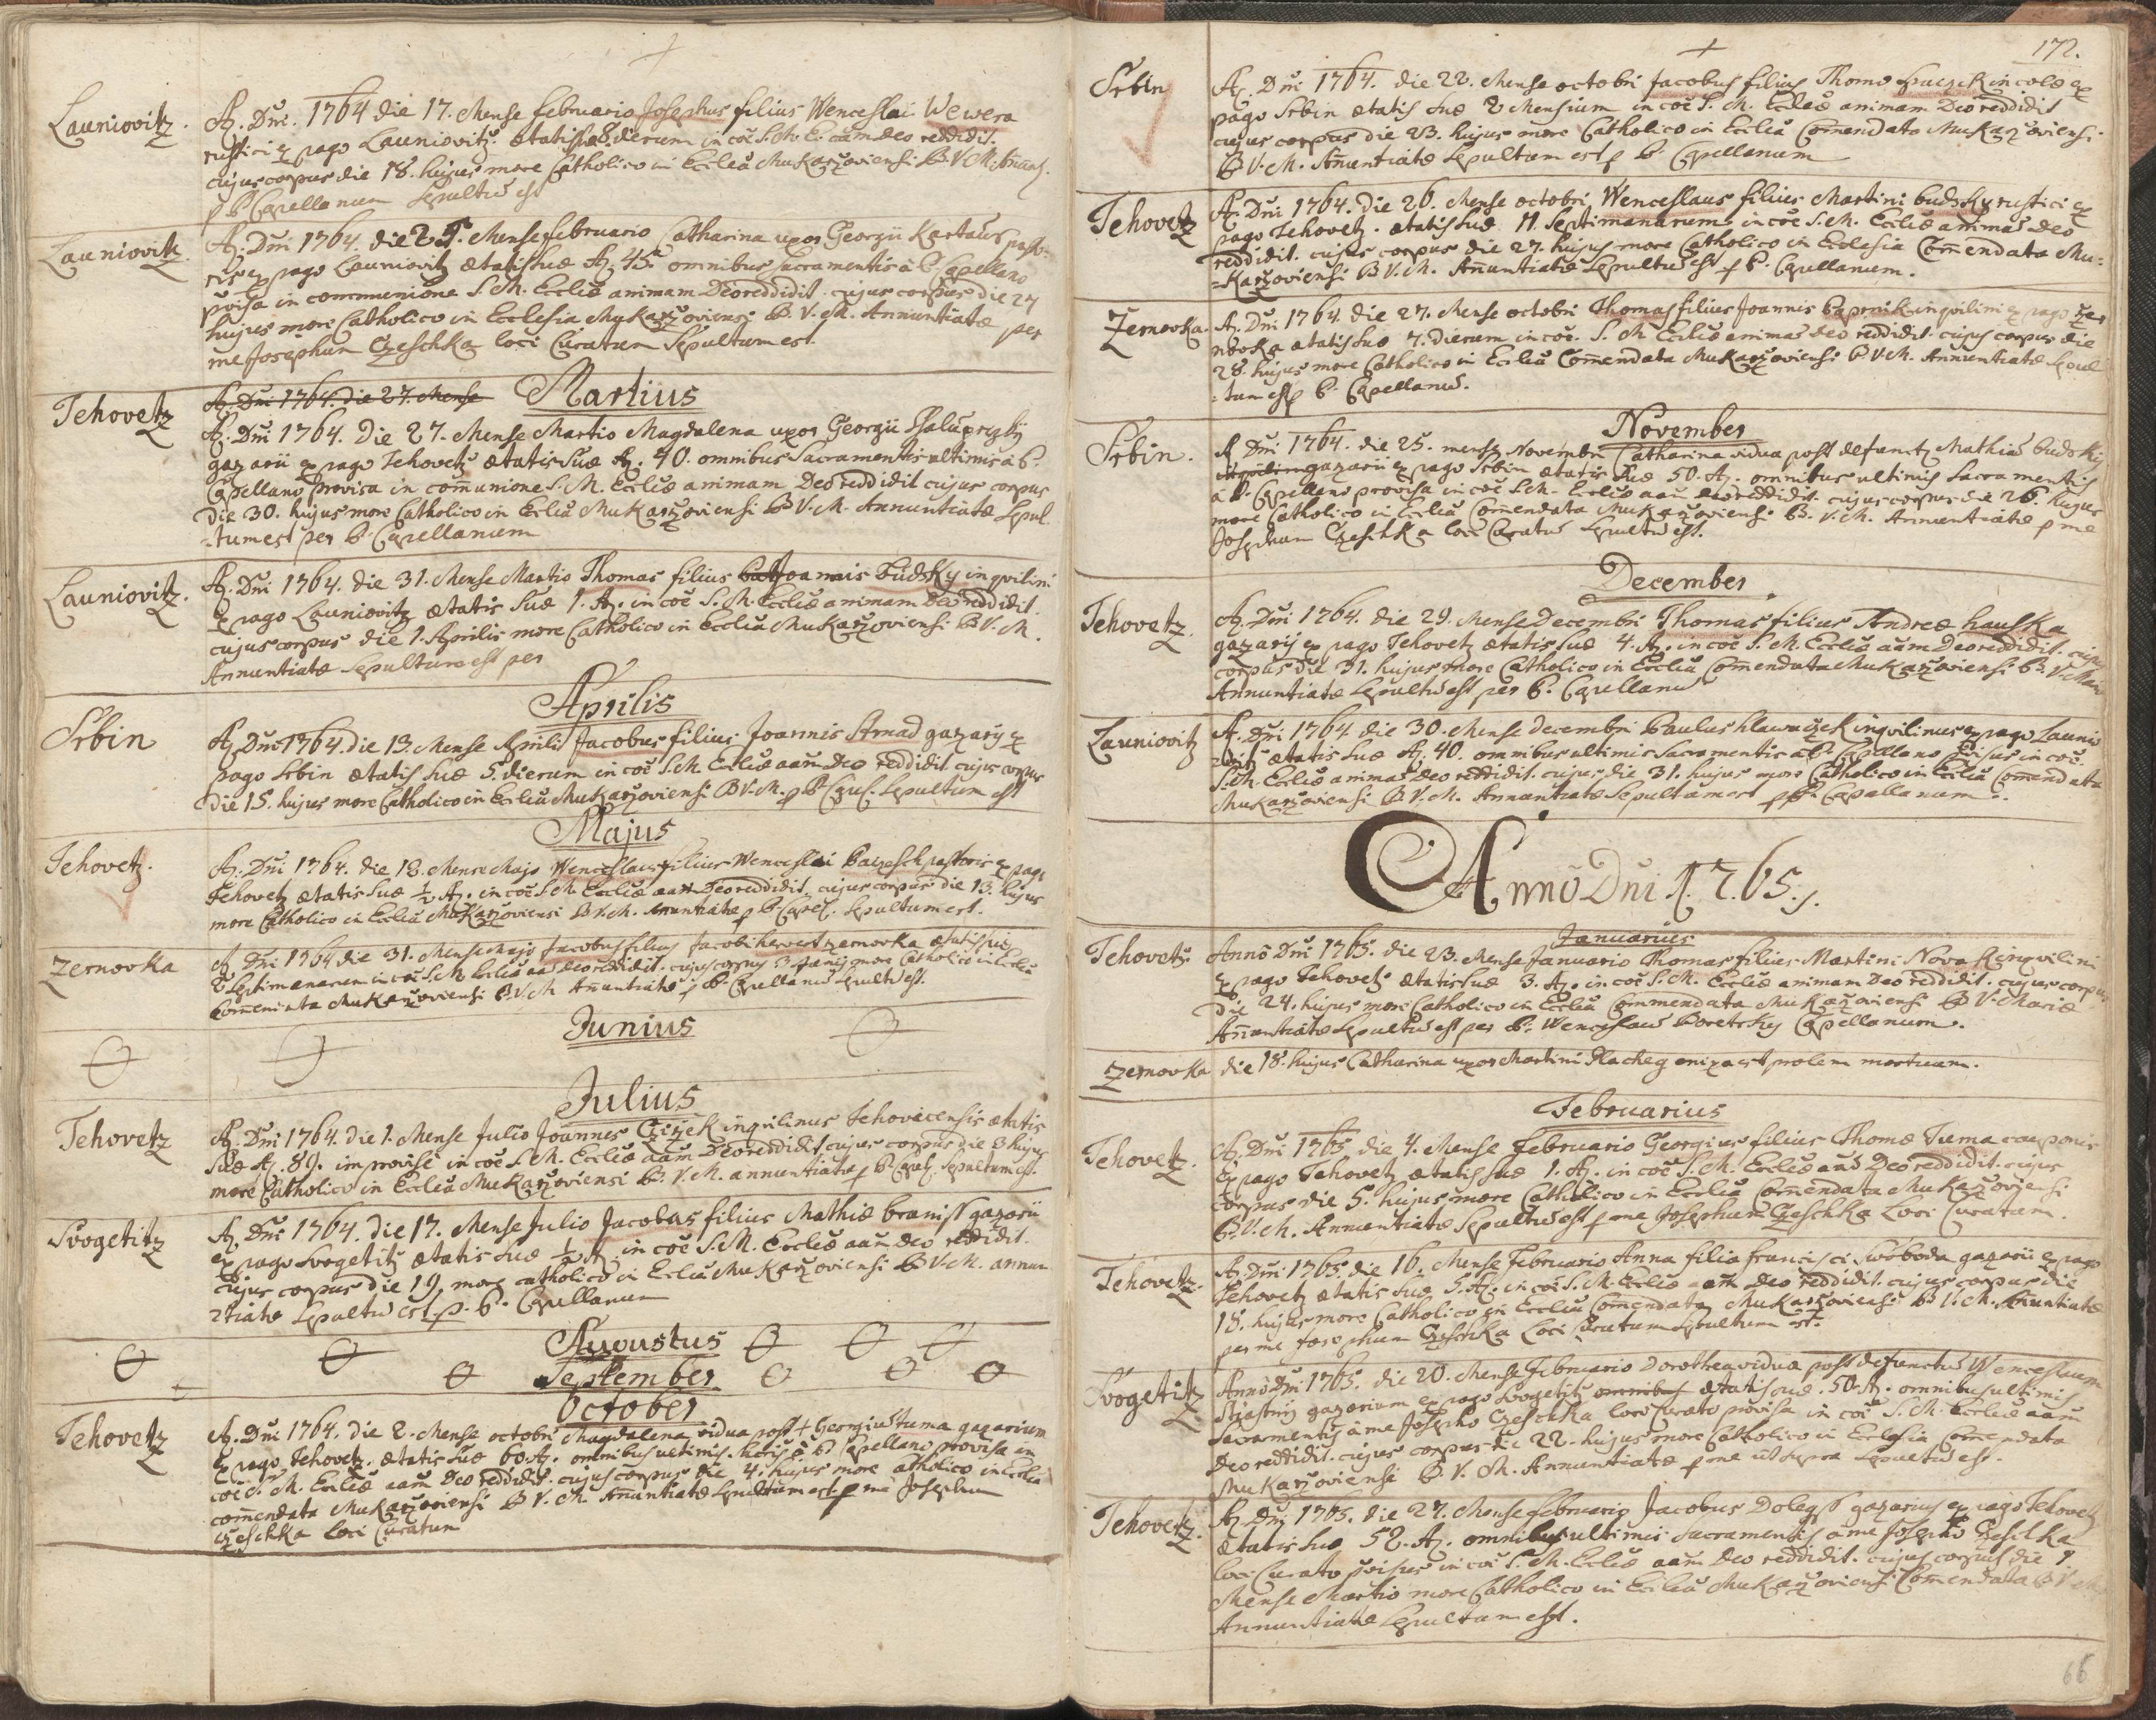 Launiovitz.
A. Dni. 1764 die 17. Mense februario Josephus filius Wenceslai Wewera
rustici ex pago Launiovitz. ætatis suæ 8. dierum in coe S. M. E. aam deo reddidit.
cujus corpus die 18. hujus more Catholico in Eccliâ Mukarzoviensi B. V. M. Annunt.
p P. Capellanum Sepultû est
Launiovitz.
A. Dni 1764. die 25. Mense februario Catharina uxor Georgii Kartaus pasto-
ris ex pago Launiovitz ætatis suæ A. 45. omnibus sacramentis à P. Capellano
pvisa in communione S. M. Eccliæ animam Deo reddidit. cujus corpus die 27
hujus more Catholico in Ecclesia Mukarzoviensi B. V. M. Annuntiatæ per
me Josephum Czeschka loci Curatum Sepultum est.
Tehovetz
A. Dni 1764. die 27. Mense
Martius
A. Dni 1764. Die 27. Mense Martio Magdalena uxor Georgii Chaluprzky
gazarii ex pago Tehovetz ætatis suæ A. 40. omnibus Sacramentis ultimis à P.
Capellano provisa in comunione S. M. Eccliæ animam Deo reddidit cujus corpus
Die 30. hujus more Catholico in Eccliâ Mukarzoviensi B V. M. Annuntiatæ Sepul-
-tum est per P. Capellanum
Launiovitz.
A. Dni 1764. die 31. Mense Martio Thomas filius Joannis Budsky inqvilini
ex pago Launiovitz ætatis suæ 1. A. in coe S. M. Eccliæ animam Deo reddidit.
cujus corpus die 1. Aprilis more Catholico in Eccliâ Mukarzoviensi B V. M.
Annuntiatæ Sepultum est per
Aprilis
Srbin
A. Dni 1764. die 13. Mense Aprili Jacobus filius Joannis Strnad gazarij ex
pago Srbin ætatis suæ 5. dierum in coe S. M. Eccliæ aam deo reddidit cujus corpus
die 15. hujus more Catholico in Eccliâ Mukarzoviensi B V. M. p P. Capel. Sepultum est
Majus
Tehovetz.
A. Dni 1764. die 12. Mense Majo Wenceslaus filius Wenceslai Barzesch pastoris ex pago
Tehovetz ætatis suæ ½ A. in coe S. M. Eccliæ aam Deo reddidit. cujus corpus die 13. hujus
more Catholico in Eccliâ Mukarzoviensi B V. M. Anuntiatæ p P. Capel. Sepultum est.
Zernovka
A. Dni 1764 die 31. Mense Majo Jacobus filius Jacobi hervert zernovka ætatis suæ
2 Septimanarum in coe S. M. Eccliæ aam deo reddidit. cujus corpus 3 Junij more Catholico in Eccliâ
Comendata Mukarzoviensi B. V. M Anuntiatæ p P. Capellanû Sepultû est.
Junius
Julius
Tehovetz
A. Dni 1764. die 1. Mense Julio Joannes Czizek inqvilinus Tehovicensis ætatis
suæ A. 89. improvise in coe S. M. Eccliæ aam Deo reddidit. cujus corpus die 3 hujus
more Catholico in Eccliâ Mukarzoviensi B. V. M. annuntiatæ p P. Capel. Sepultum est.
Svogetitz
A. Dni 1764. die 17. Mense Julio Jacobus filius Mathiæ Braniss gazarii
ex pago Svogetitz ætatis suæ ½ A. in coe S. M. Eccliæ aam deo reddidit.
cujus corpus die 19. more catholico in Eccliâ Mukarzoviensi B V. M. annun
-tiatæ Sepultû est p. P. Capellanum
Augustus
September
October
Tehovetz
A. Dni 1764. die 2. Mense octobri Magdalena vidua post + Georgiû tuma gazarium
ex pago Tehovetz. ætatis suæ 60 A. omnibus ultimis Sacris à P. Capellano provisa in
coe S. M. Eccliæ aam Deo reddidit. cujus corpus die 4. hujus more catholico in Ecclia
comendata Mukarzoviensi B V. M. Anuntiatæ Sepultum est p me Josephum
czeschka loci Curatum
172.
Srbin
A. Dni 1764. die 22. Mense octobri Jacobus filius Thomæ incolæ ex
pago Srbin ætatis suæ 2 Mensium in coe S. M. Eccliæ animam Deo reddidit
cujus corpus die 23. hujus more Catholico in Eccliâ Comendata Mukarzoviensi
B V. M. Anuntiatæ Sepultum est p P. Capellanum
Tehovetz
A. Dni 1764. die 26. Mense octobri Wenceslaus filius Martini budsky rustici ex
pago Tehovetz. ætatis suæ 11 Septimanarum in coe S. M. Eccliæ animâ deo
reddidit. cujus corpus die 27. hujus more Catholico in Ecclesia Comendata Mu-
-Karzoviensi B V. M. Anuntiatæ Sepultû est p P. Capellanum.
Zernovka.
A. Dni 1764. die 27. Mense octobri Thomas filius Joannis Paprnik inqvilini ex pago zer
novka ætatis suæ 7. dierum in coe. S. M Eccliæ animâ deo reddidit cujus corpus die
28. hujus more Catholico in Eccliâ Comendata Mukarzoviensi B. V. M. Annuntiatæ Sepul
-tum est p P. Capellanû.
November
Srbin.
A Dni 1764. die 25. mense Novembri Catharina vidua post defunct. Mathiâ budsky
gazarii ex pago Srbin ætatis suæ 50. A. omnibus ultimis Sacramentis
à P. Capellano provisa in coe S. M. Eccliæ aam deo reddidit. cujus corpus die 26. hujus
more Catholico in Eccliâ Comendata Mukarzoviensi B. V. M. Annuntiatæ p me
Josephum Czeschka loci Curatû Sepultû est.
December
Tehovetz.
A. Dni 1764. die 29. Mense Decembri Thomas filius Andreæ hauska
gazarij ex pago Tehovetz ætatis suæ 4. A. in coe S. M. Eccliæ aam Deo reddidit. cujus
corpus die 31. hujus more Catholico in Eccliâ Comendata Mukarzoviensi B. V. Mariæ
Annuntiatæ Sepultû est per P. Capellanû
Launiovitz
A. Dni 1764 die 30. Mense Decembri Paulus hlawaczek inqvilinus ex pago Launio
-vitz ætatis suæ A. 40. omnibus ultimis Sacramentis à P. Capellano pvisus in coe.
S. M. Eccliæ animâ Deo reddidit. cujus die 31. hujus more Catholico in Eccliâ Comendata
Mukarzoviensi B V. M. Annuntiatæ Sepultum est p P. Capellanum.
Anno Dni 1.7.65.
Januarius
Tehovetz.
Anno Dni 1765. die 23. Mense Januario Thomas filius Martini Novak inqvilini
ex pago Tehovetz ætatis suæ 3. A. in coe S. M. Eccliæ animam Deo reddidit. cujus corpus
Die 24. hujus more Catholico in Eccliâ Commendata Mukarzoviensi B V. Mariæ
Anuntiatæ Sepultû est per P. Wenceslaû Boretsky Capellanum.
Zernovka
die 18. hujus Catharina uxor Martini Placheg enixa est prolem mortuam.
Februarius
Tehovetz.
A. Dni 1765 die 4. Mense februario Georgius filius Thomæ Tuma cauponis
Ex pago Tehovetz ætatis suæ 1. A. in coe S. M. Eccliæ aam Deo reddidit. cujus
corpus die 5. hujus more Catholico in Eccliâ Comendata Mukarzoviensi
B. V. M. Annuntiatæ Sepultû est p me Josephum Czeschka Loci Curatum.
Tehovetz.
A. Dni 1765. die 16. Mense Februario Anna filia francisci Swoboda gazarii ex pago
Tehovetz ætatis suæ 5. A. in coe S. M. Eccliæ aam Deo reddidit. cujus corpus die
18. hujus more Catholico in Eccliâ Comendata Mukarzoviensi B V. M. Anuntiatæ
per me Josephum Czeschka Loci Curatum Sepultum est.
Svogetitz
Anno Dni 1765. die 20. Mense Februario Dorothea vidua post defunctû Wenceslaum
Stiastnij gazarium ex pago Svogetitz omnibus ætatis suæ. 50. A. omnibus ultimis
Sacramentis à me Josepho Czeschka loci Curato pvisa in coe S. M. Eccliæ aam
Deo reddidit. cujus corpus die 22. hujus more Catholico in Ecclesia Comendata
Mukarzoviensi B. V. M. Annuntiatæ p me ut supra Sepultû est.
Tehovetz.
A. Dni 1765. die 27. Mense februario Jacobus Dolegss gazarius ex pago Tehovetz
ætatis suæ 52. A. omnibus ultimis sacramentis à me Josepho Czeschka
loci Curato pvisus in coe S. M. Eccliæ aam Deo reddidit. cujus corpus die 1
Mense Martio more Catholico in Eccliâ Mukarzoviensi Comendata B V. M.
Annuntiatæ Sepultum est.
66